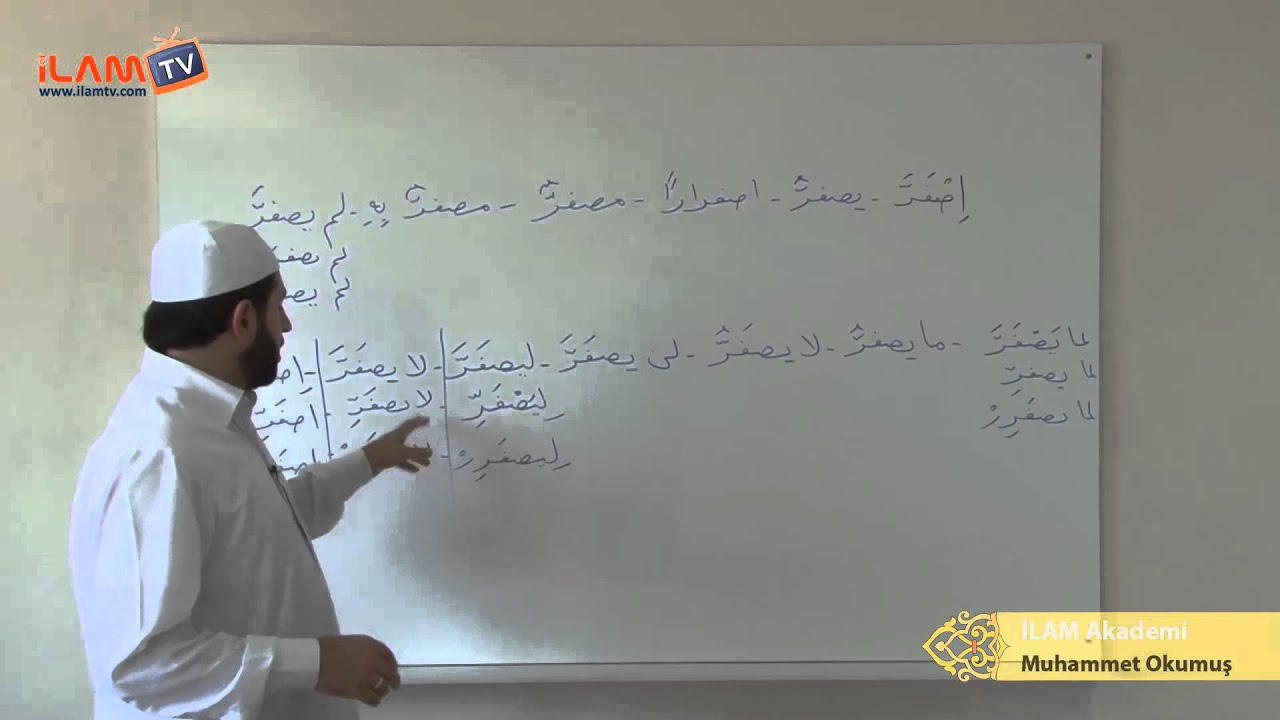 İLAM TV
www.ilamtv.com
إِصْفَرَّ - يصفرُّ - اصفرارًا - مصفرٌّ - مصفرٌّ بِهِ - لم يصفرَّ
لم يصفرِّ
لم
لما يَصْفَرَّ - ما يصفرُّ - لا يصفَرُّ - لن يصفَرَّ - ليصفَرَّ - لا يصفَرَّ -
لما يصفرِّ لِيَصْفَرِّ - لا يصفَرِّ - اصفَرِّ
لما يصفَرِرْ لِيصفَرِرْ -
İLAM Akademi
Muhammet Okumuş